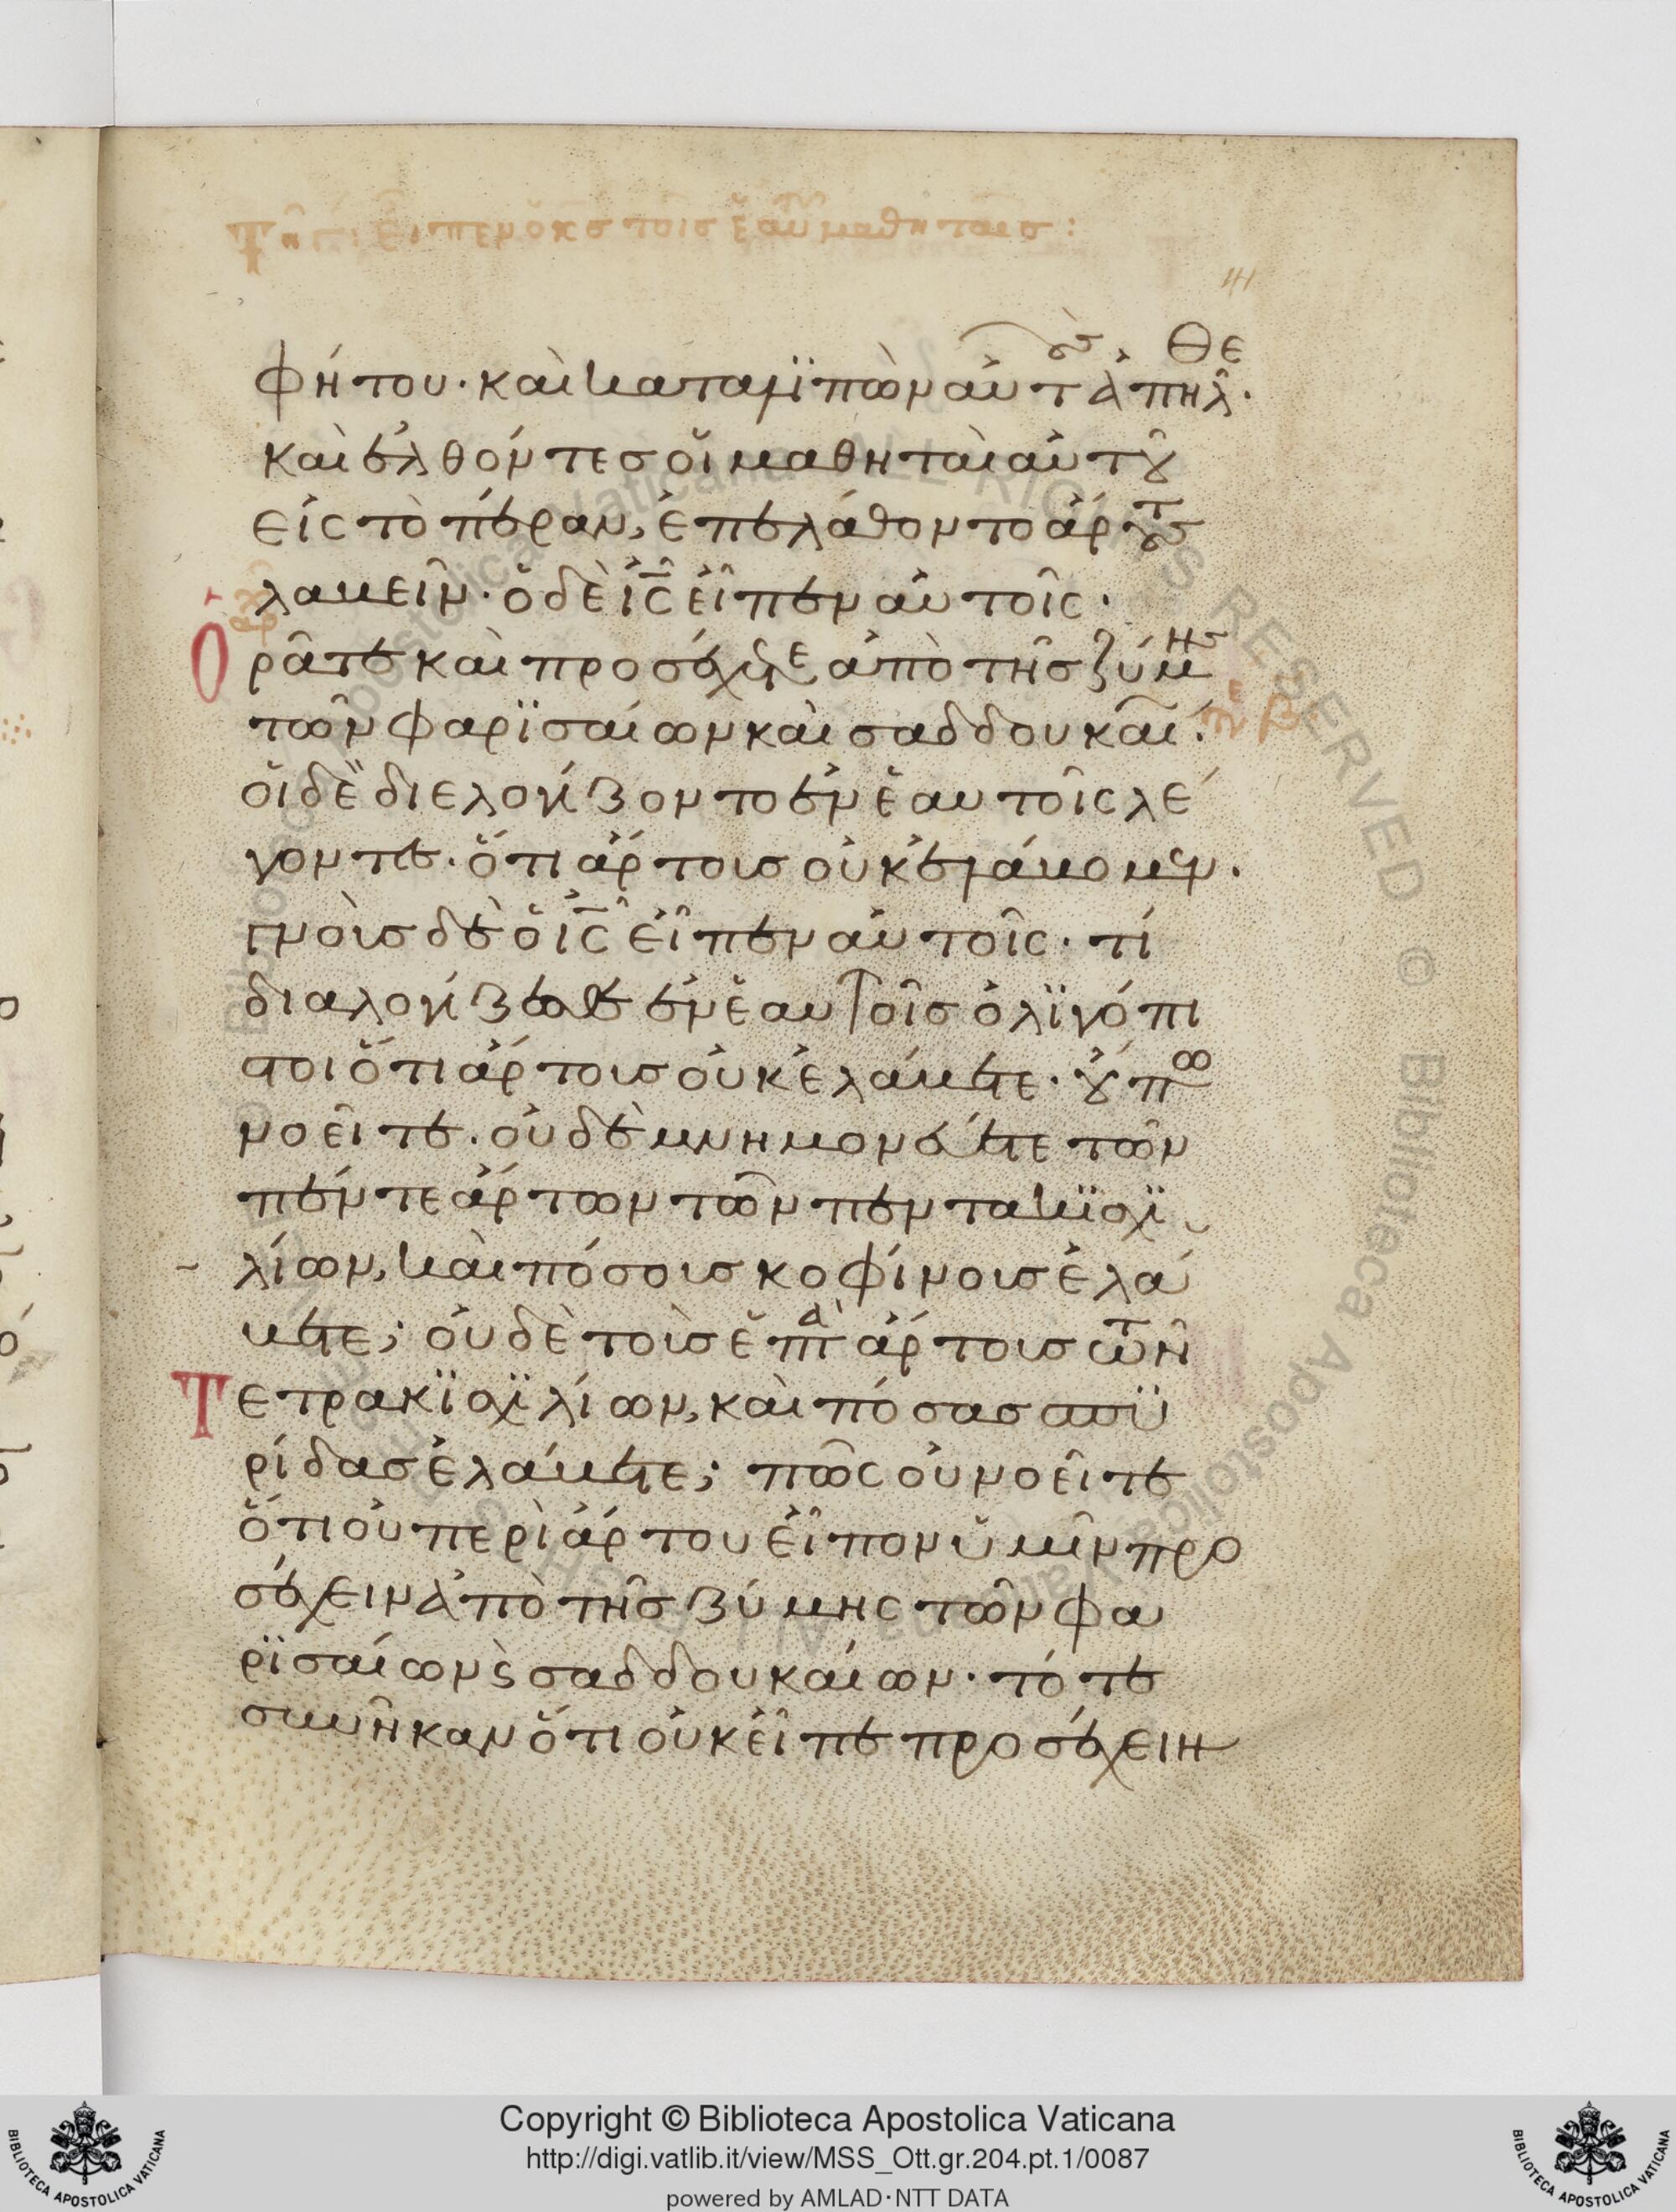 εἶπεν ὁ κς τοῖς ἑαυ μαθηταῖς:
φήτου· καὶ καταλϊπὼν αὐτοὺς ἀπῆλθε·
καὶ ἐλθόντες οἱ μαθηταὶ αὐτοῦ
εἰς τὸ πέραν, ἐπελάθοντο ἄρτους
λαβεῖν· ὁ δὲ ἰς εἶπεν αὐτοῖς·
Ὁρᾶτε καὶ προσέχετε ἀπὸ τῆς ζύμης
τῶν φαρϊσαίων καὶ σαδδουκαί·
οἱ δὲ διελογίζοντο ἐν ἑαυτοῖς λέ
γοντες· ὅτι ἄρτους οὐκ ἐλάβομεν·
γνοὺς δὲ ὁ ἰς εἶπεν αὐτοῖς· τί
διαλογίζεσθε ἐν ἑαυτοῖς ὀλϊγόπι
στοι ὅτι ἄρτους οὐκ ἐλάβετε· οὔπω
νοεῖτε· οὐδὲ μνημονεύετε τῶν
πέντε ἄρτων τῶν πεντακϊσχϊ
λίων, καὶ πόσους κοφίνους ἐλά
βετε; οὐδὲ τοὺς ἑπτὰ ἄρτους τῶν
Τετρακϊσχϊλίων, καὶ πόσας σπυ
ρίδας ἐλάβετε; πῶς οὐ νοεῖτε
ὅτι οὐ περὶ ἄρτου εἶπον ὑμῖν προ
σέχειν ἀπὸ τῆς ζύμης τῶν φα
ρϊσαίων ϛ σαδδουκαίων· τότε
συνῆκαν ὅτι οὐκ εἶπε προσέχειν
Copyright © Biblioteca Apostolica Vaticana
http://digi.vatlib.it/view/MSS_Ott.gr.204.pt.1/0087
powered by AMLAD·NTT DATA